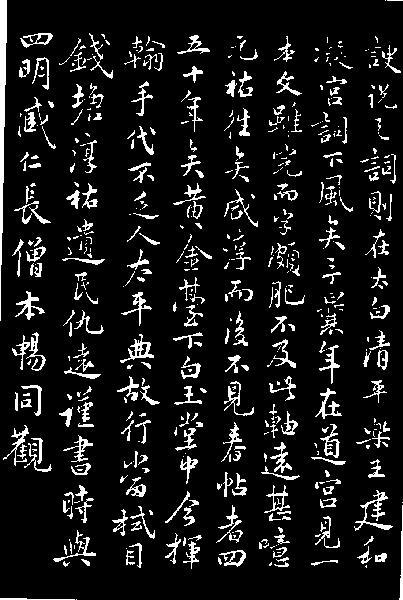 諛說之詞則在太白清平樂王建和
凝宮詞下風矣予曩年在道宮見一
本文雖完而字頗肥不及此軸遠甚噫
元祐往矣咸淳而後不見春帖者四
五十年矣黃金臺下白玉堂中今揮
翰手代不乏人太平典故行當拭目
錢塘淳祐遺民仇遠謹書時與
四明臧仁長僧木暢同觀